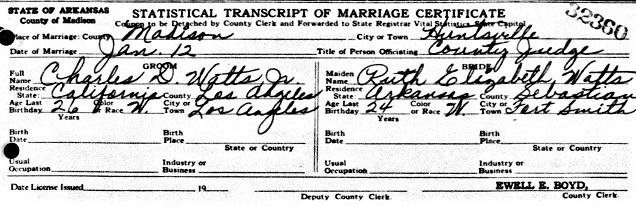 STATE OF ARKANSAS
County of Madison
STATISTICAL TRANSCRIPT OF MARRIAGE CERTIFICATE
32360
Coupon to be Detached by County Clerk and Forwarded to State Registrar Vital Statistics, State Capitol
Place of Marriage: County Madison City or Town Huntsville
Date of Marriage Jan. 12 Title of Person Officiating County Judge
GROOM
Full Name Charles D. Watts Jr.
Residence State: California County Los Angeles
Age Last Birthday 26 Color or Race W. City or Town Los Angeles
Years
Birth Date Birth Place
State or Country
Usual Occupation Industry or Business
BRIDE
Maiden Name Ruth Elizabeth Watts
Residence State: Arkansas County Sebastian
Age Last Birthday 24 Color or Race W. City or Town Fort Smith
Years
Birth Date Birth Place
State or Country
Usual Occupation Industry or Business
Date License Issued 19
Deputy County Clerk.
EWELL E. BOYD,
County Clerk.